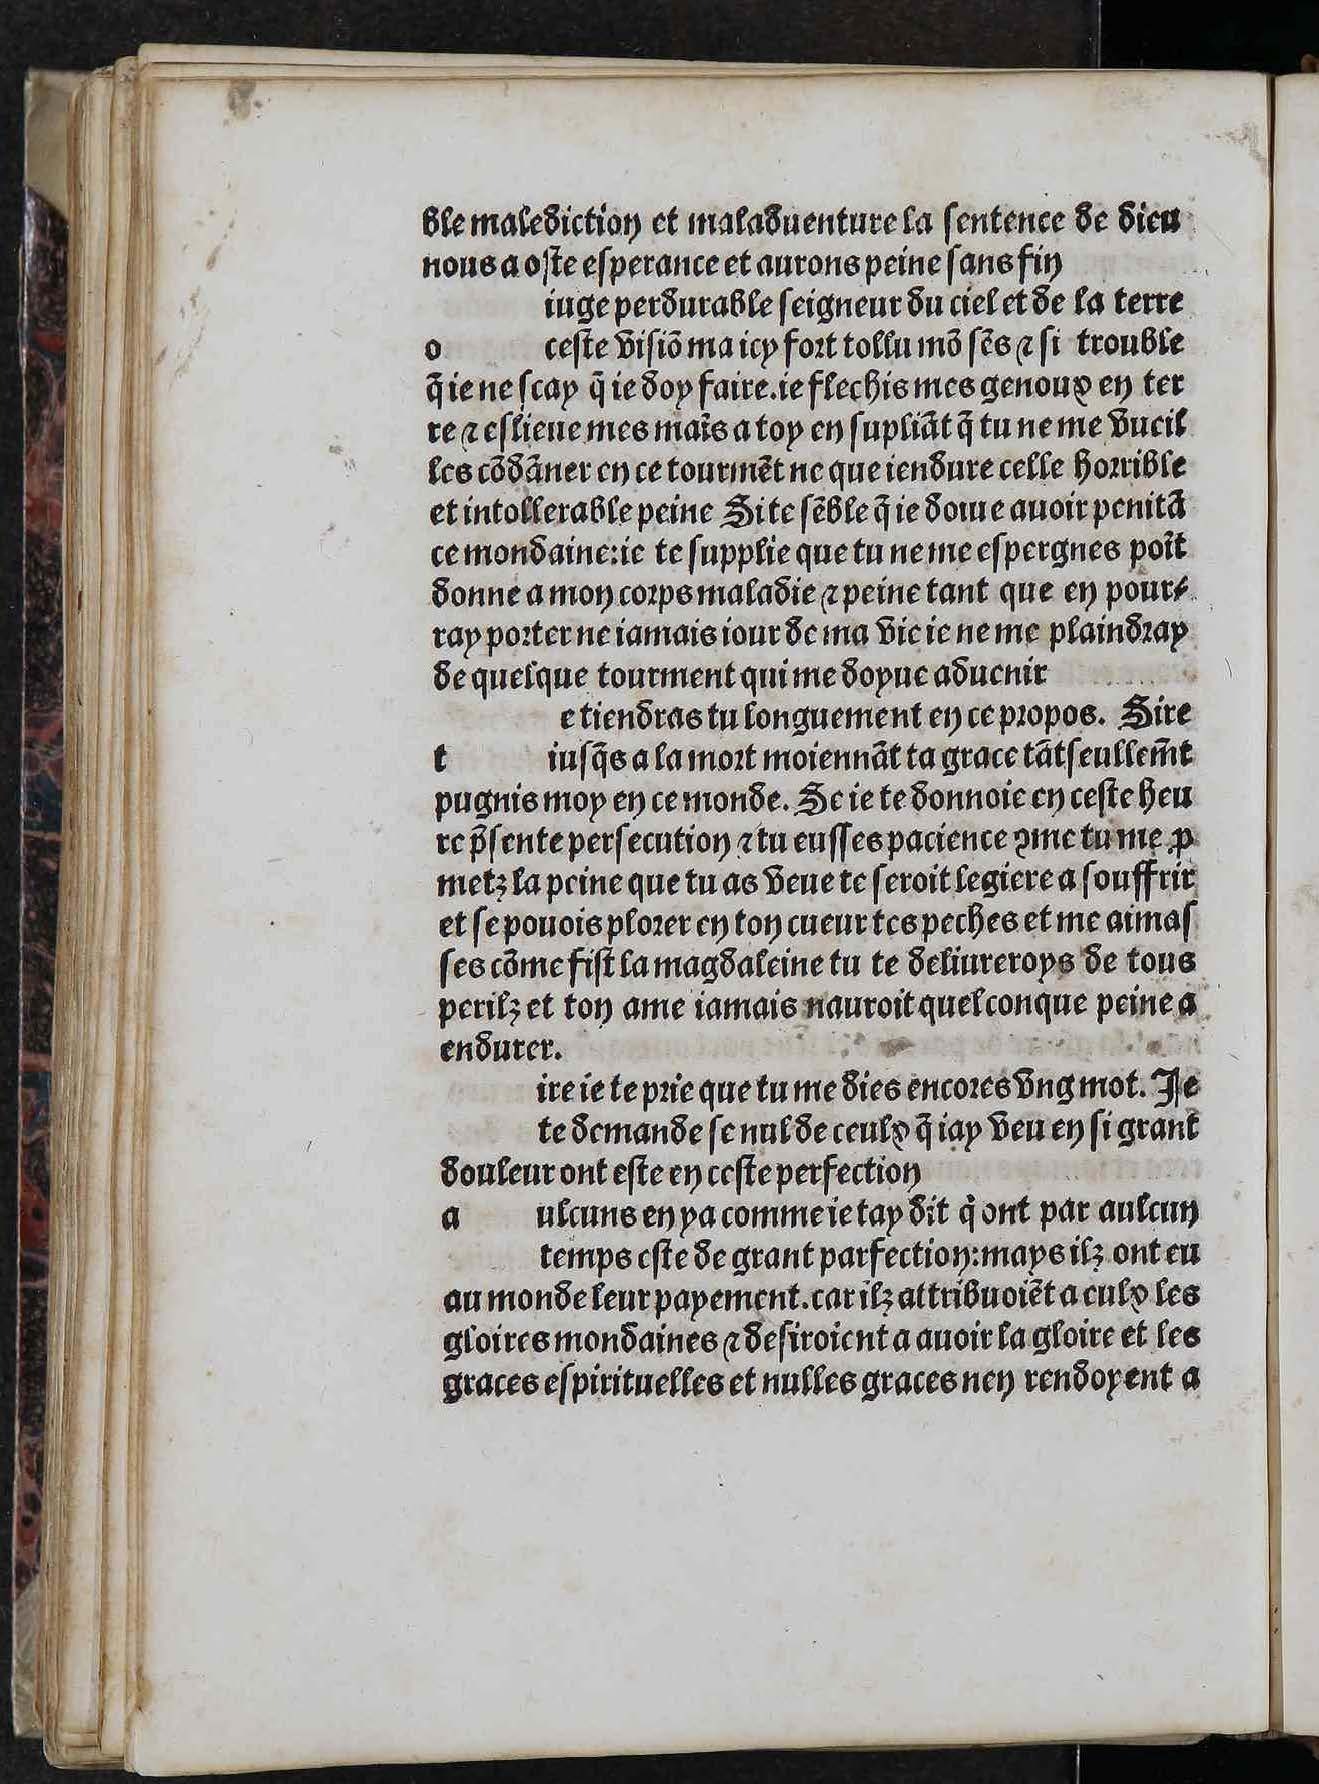 ble malediction et maladuenture la ſentence de dieu
nous a oſte eſperance et aurons peine ſans fin
iuge perdurable ſeigneur du ciel et de la terre
o ceſte viſiõ ma icy fort tollu mõ ſẽs ⁊ ſi trouble
q̃ ie ne ſcay q̃ ie doy faire. ie flechis mes genoux en ter
re ⁊ eſlieue mes maĩs a toy en ſupliãt q̃ tu ne me vueil
les cõdãner en ce tourmẽt ne que iendure celle horrible
et intollerable peine Si te ſẽble q̃ ie doiue auoir penitã
ce mondaine: ie te ſupplie que tu ne me eſpergnes poĩt
donne a mon corps maladie ⁊ peine tant que en pour⸗
ray porter ne iamais iour de ma vie ie ne me plaindray
de quelque tourment qui me doyue aduenir
e tiendras tu longuement en ce propos. Sire
t iuſq̃s a la mort moiennãt ta grace tãt ſeullem̃t
pugnis moy en ce monde. Se ie te donnoie en ceſte heu
re p̃ſente perſecution ⁊ tu euſſes pacience ꝯme tu me ꝓ
metz la peine que tu as veue te ſeroit legiere a ſouffrir
et ſe pouois plorer en ton cueur tes peches et me aimaſ
ſes cõme fiſt la magdaleine tu te deliureroys de tous
perilz et ton ame iamais nauroit quelconque peine a
endurer.
ire ie te prie que tu me dies encores vng mot. Je
te demande ſe nul de ceulx q̃ iay veu en ſi grant
douleur ont eſte en ceſte perfection
a ulcuns en ya comme ie tay dit q̃ ont par aulcun
temps eſte de grant parfection: mays ilz ont eu
au monde leur payement. car ilz attribuoiẽt a eulx les
gloires mondaines ⁊ deſiroient a auoir la gloire et les
graces eſpirituelles et nulles graces nen rendoyent a